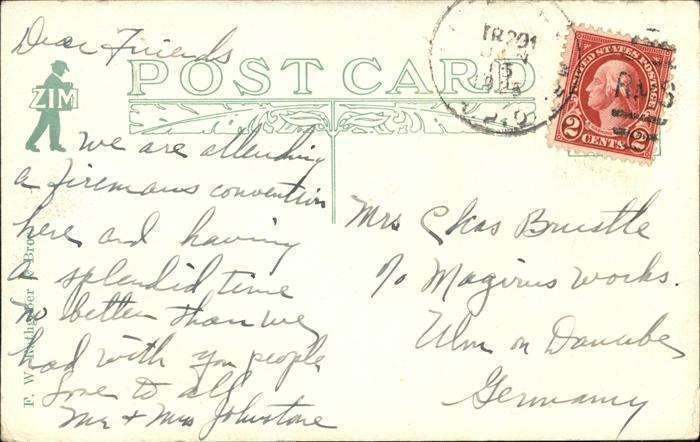 Dear Friends
POST CARD
ZIM
We are attending
a Firemans convention
here and having
a splendid time
no better than we
had with you people
Love to all
Mr + Mrs Johnstone
Mrs Chas Brustle
% Magirus Works.
Ulm on Danube
Germany
UNITED STATES POSTAGE
2 CENTS 2
R.M.S
F. W.